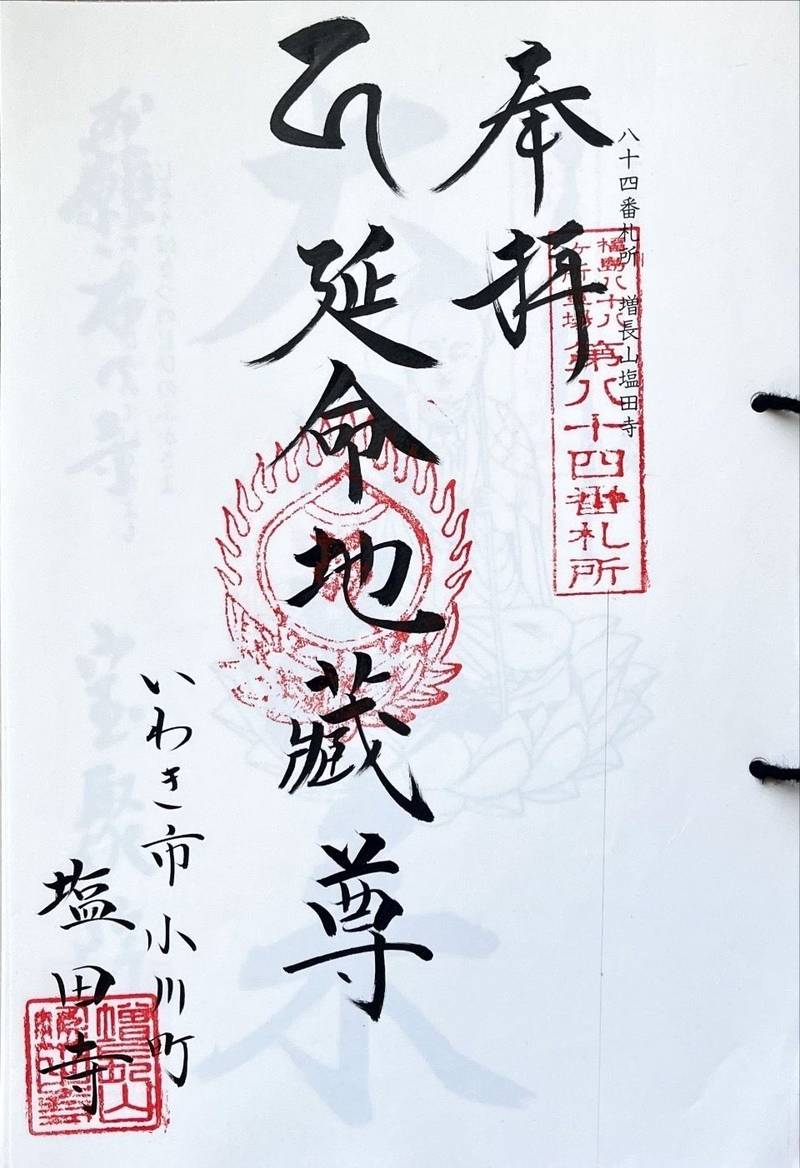 八十四番札所 増長山塩田寺
福島八十八
ヶ所霊場
第八十四番札所
奉拝
延命地蔵尊
いわき市小川町
塩田寺